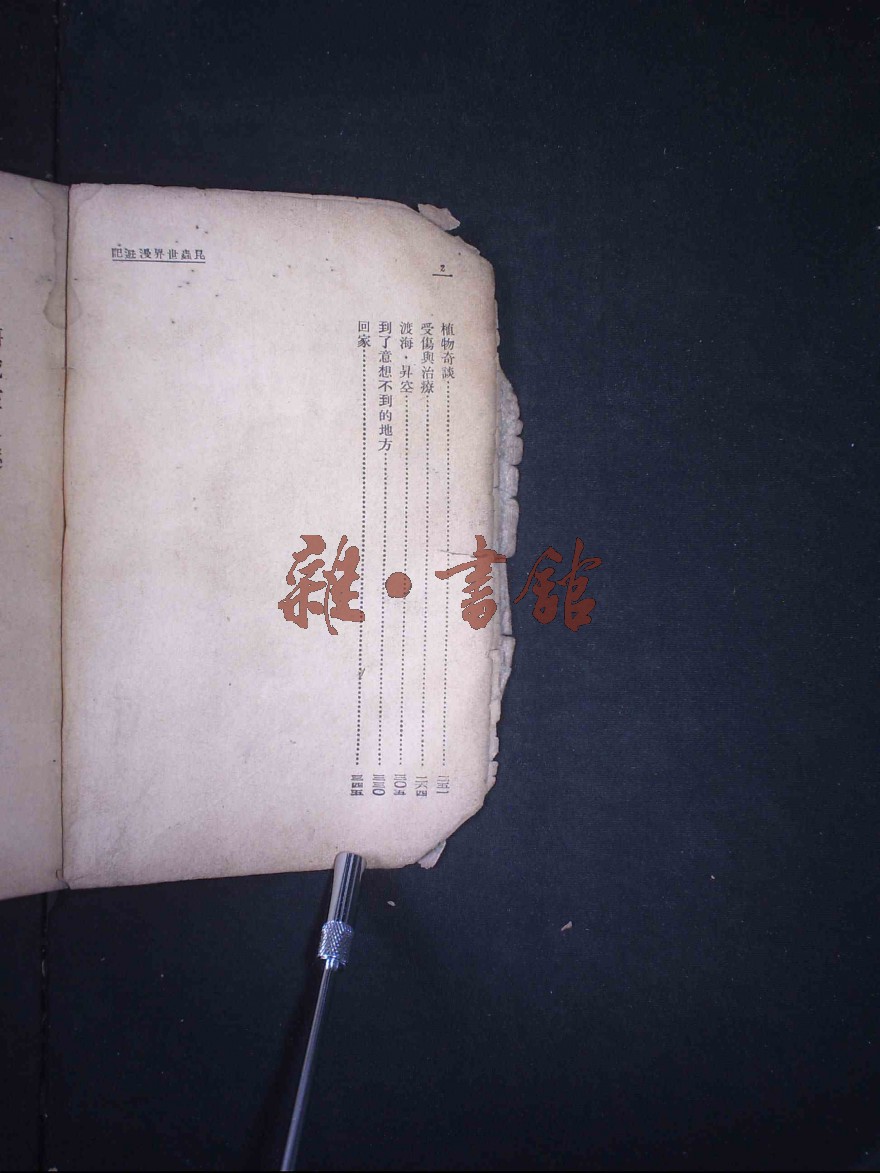 昆蟲世界漫遊記
2
植物奇談……二五一
受傷與治療……二六四
渡海・昇空……三〇五
到了意想不到的地方……三三〇
回家……三四五
雜・書館